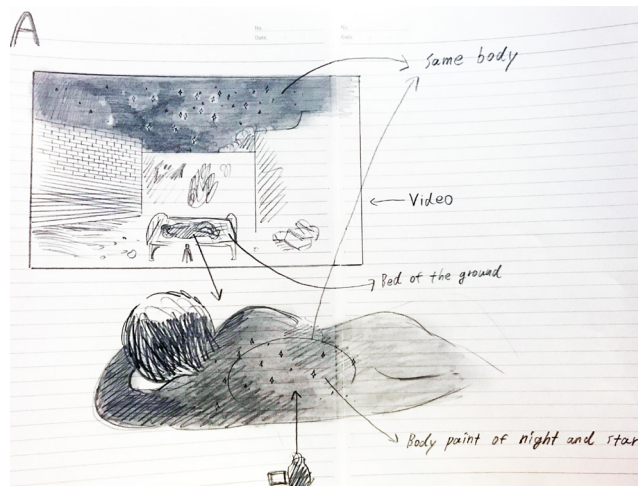 A
No.
Date
No.
Date
Same body
Video
Bed of the ground
Body paint of night and star